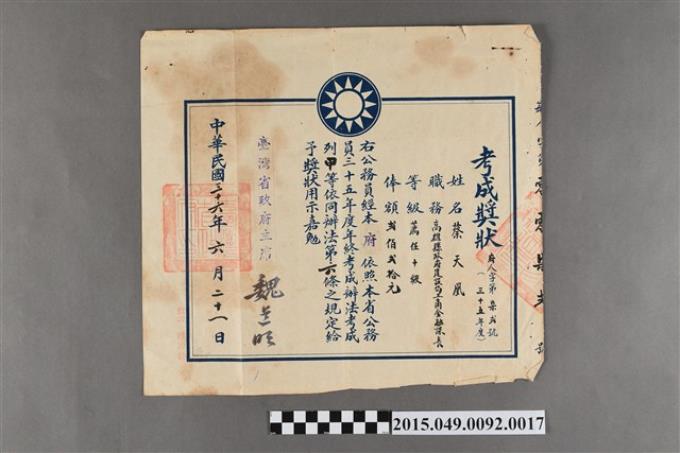 考成奬狀
府人字第 號
(三十五年度)
姓名 蔡天鳳
職務 高雄縣政府建設局工商金融課長
等級 薦任十級
俸額 貳佰貳拾元
右公務員經本府依照本省公務
員三十五年度年終考成辦法考成
列甲等依同辦法第六條之規定給
予奬狀用示嘉勉
臺灣省政府主席
魏道明
中華民國三十六年六月二十一日
2015.049.0092.0017